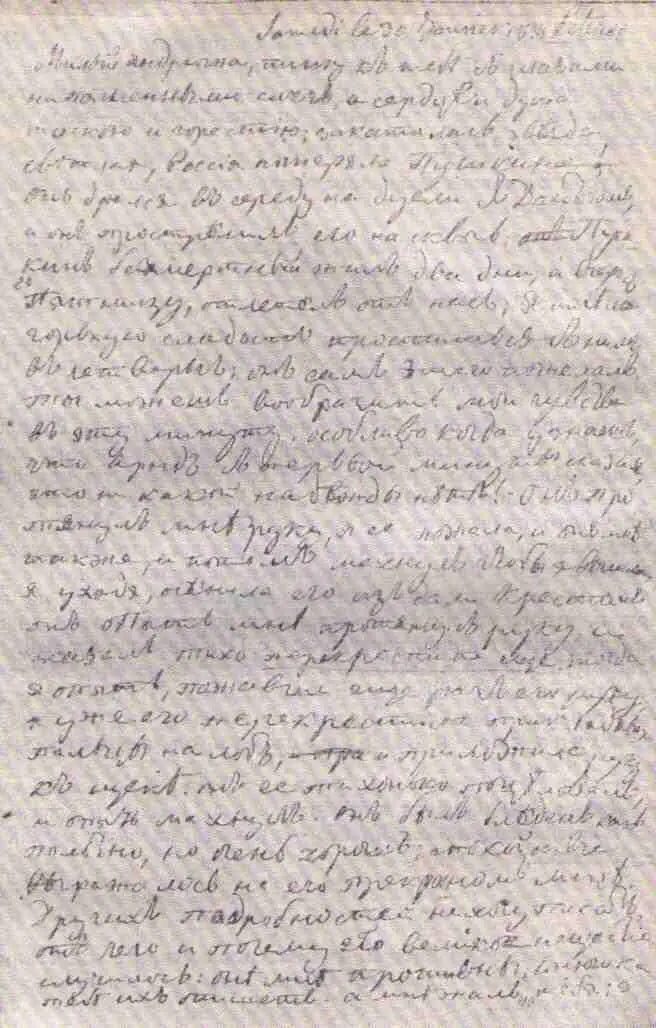 Samedi le 30 Janvier 1837
Милый Андрюша, пишу къ тебѣ съ глазами
наполненными слезъ, а сердце и душа
тоскою и горестию; закатилась звѣзда
свѣтлая, Россія потеряла Пушкина!
онъ дрался въ середу на дуели съ Дантезомъ,
и онъ прострелилъ его на сквозь, Пуш
кинъ безсмертный жилъ два дни, а вчерась
въ Пятницу, отлетелъ отъ насъ; я имѣла
горькую сладость проститься съ нимъ
въ четверьгъ; онъ самъ этаго пожелалъ
ты можешь вообразить мои чувства
въ эту минуту, особливо когда узнаешь,
что Арндъ съ первой минуты сказалъ,
что никакой надежды нѣтъ! онъ про
тянулъ мнѣ руку, я ее пожала, и онъ мнѣ
также, и потомъ махнулъ чтобы я вышла
я уходя, осѣнила его издали крестомъ
онъ опять мнѣ протянулъ руку и
сказалъ тихо перекрестите еще, тогда
я опять, пожавши еще разъ его руку
я уже его перекрестила прикладывая
пальцы на лобъ, и приложила руку
къ щекѣ: онъ ее тихонько поцѣловалъ,
и опять махнулъ. онъ былъ блѣденъ какъ
полотно, но очень хорошъ; спокойствіе
выражалось на его прекрасномъ лицѣ.
Другихъ подробностей нехочу писать,
отъ чего и почему это великое нещастіе
случилось: онѣ мнѣ противны; Сонюшка
тебѣ ихъ опишетъ. а мнѣ жаль